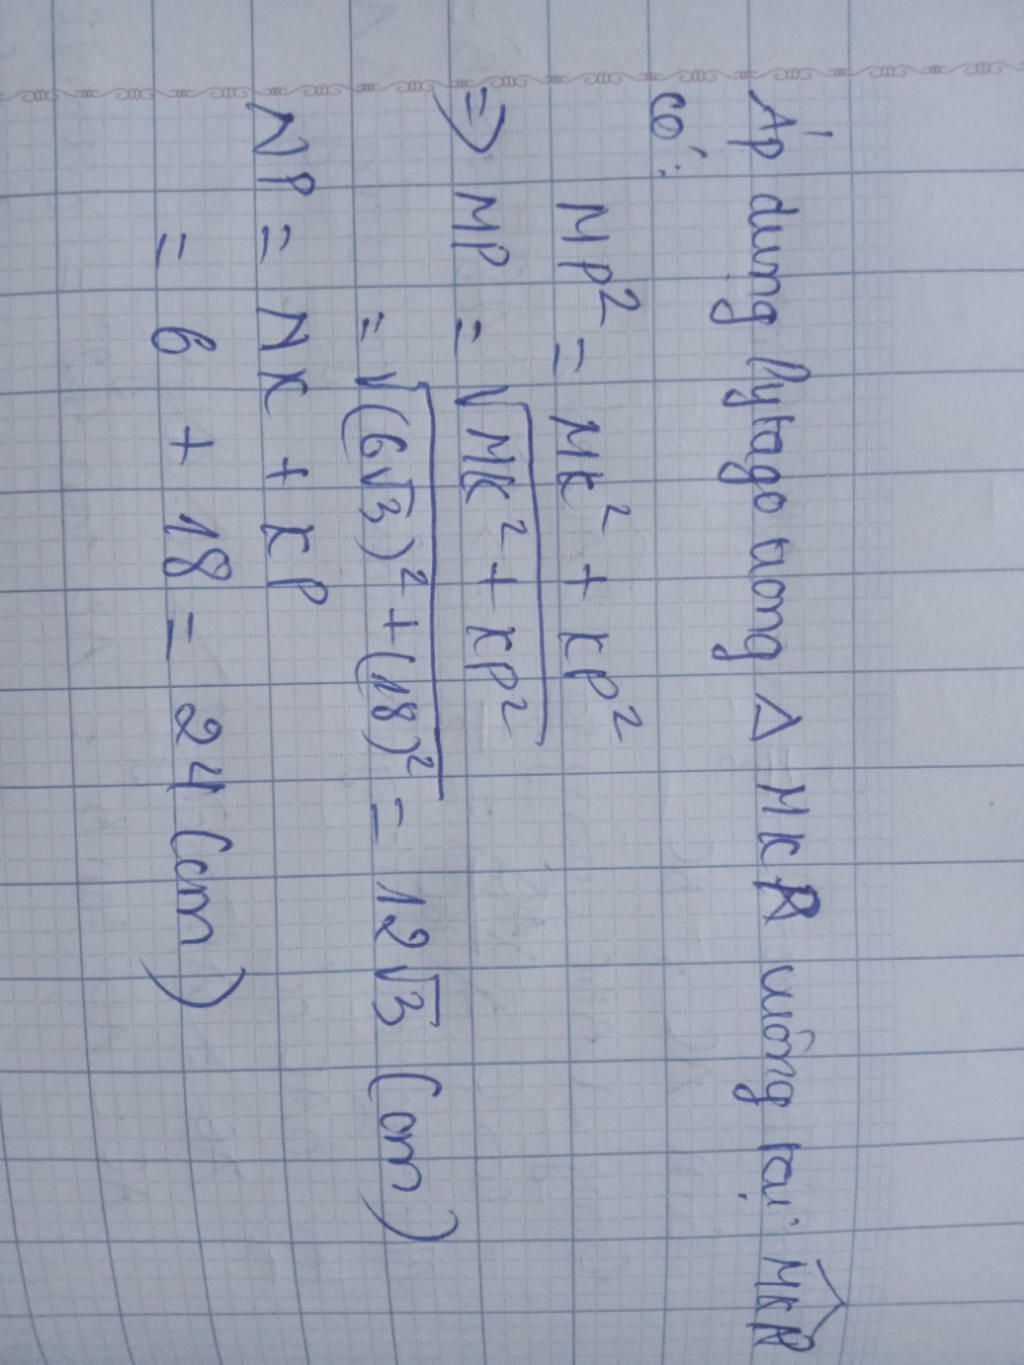 Áp dụng Pytago trong Δ MKP vuông tại \widehat{MKP}
có:
MP² = MK² + KP²
=> MP = √(MK² + KP²)
= √((6√3)² + (18)²) = 12√3 (cm)
NP = NK + KP
= 6 + 18 = 24 (cm)